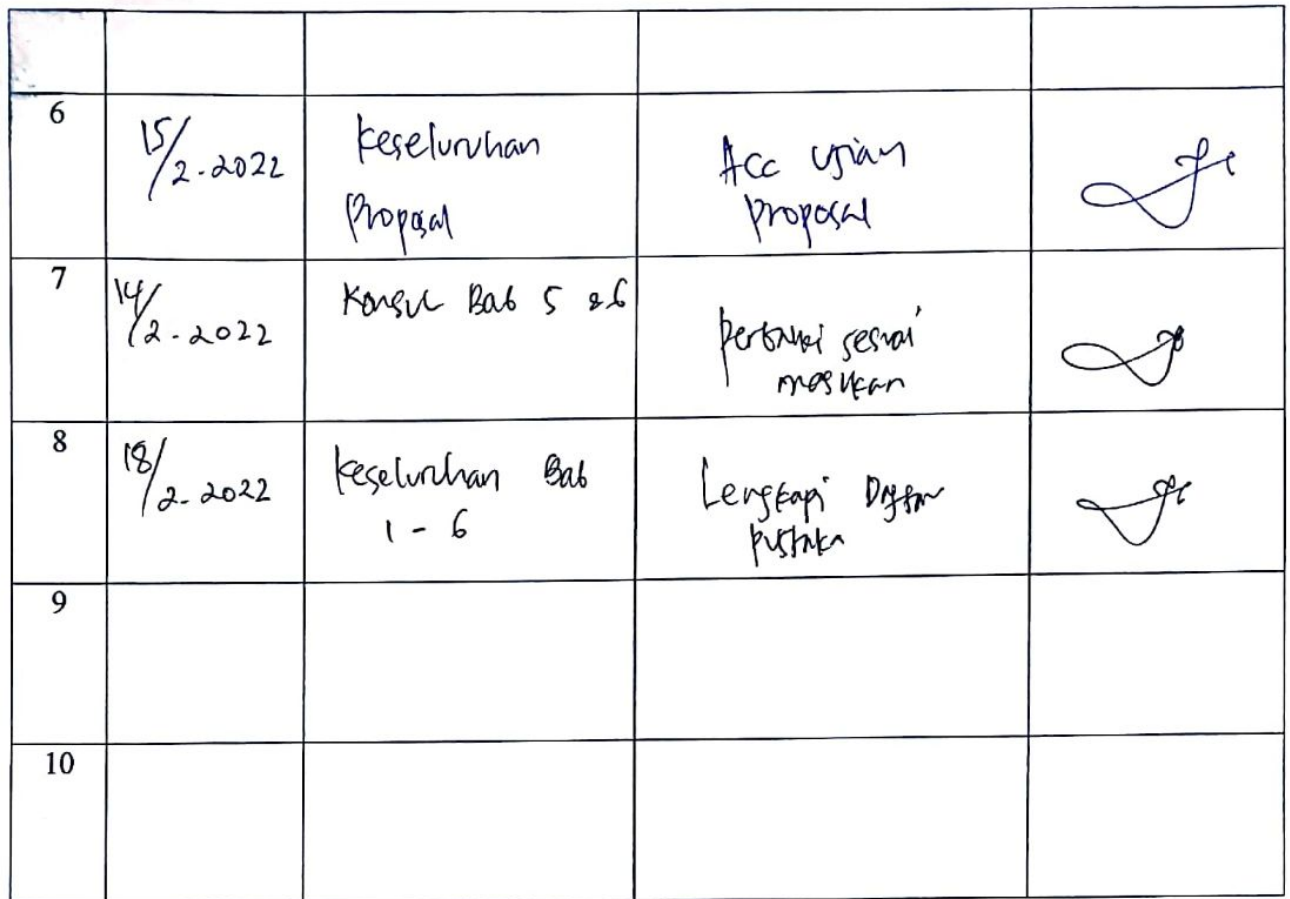 6
15/2-2022
Keseluruhan
Proposal
Acc Ujian
Proposal
7
14/2-2022
Konsul Bab 5 & 6
perbaiki sesuai
masukan
8
18/2-2022
Keseluruhan Bab
1 - 6
Lengkapi Daftar
pustaka
9
10